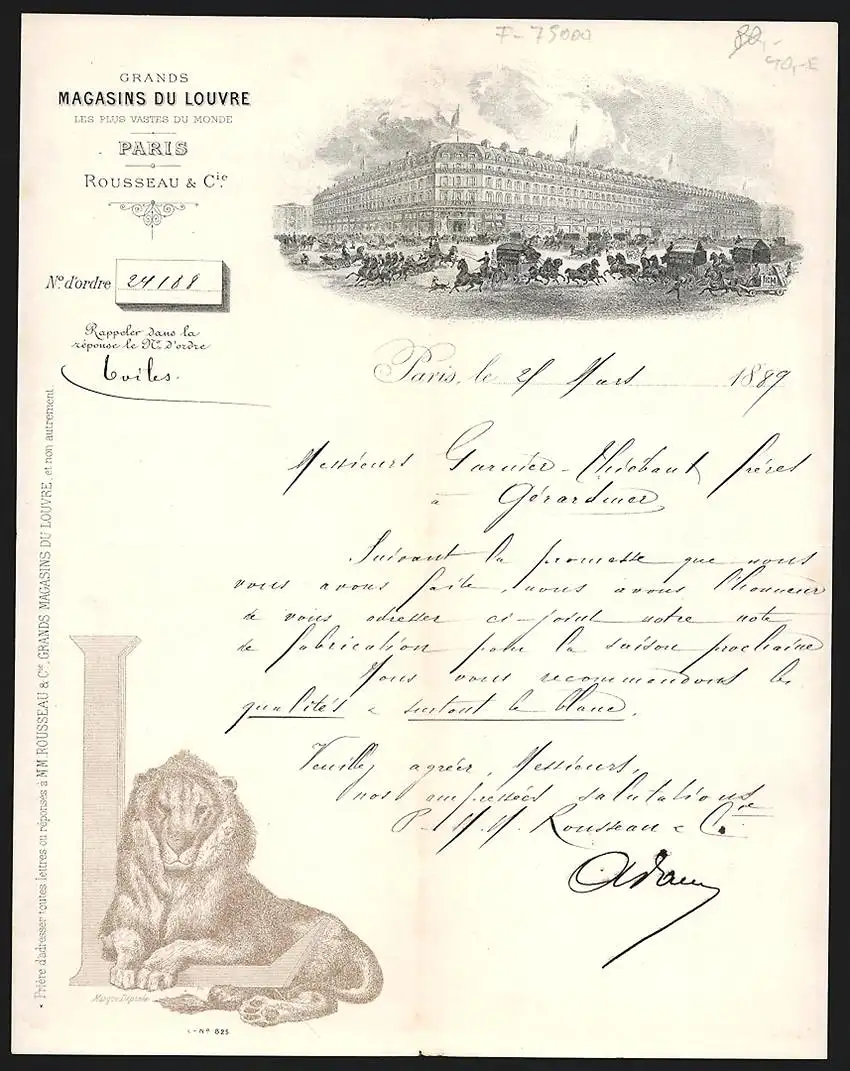 F-75000
80,-
40,-E
GRANDS
MAGASINS DU LOUVRE
LES PLUS VASTES DU MONDE
PARIS
ROUSSEAU & Cie.
No. d'ordre 24188
Rappeler dans la
réponse le No. d'ordre
toiles.
Paris, le 21 Mars 1889
Messieurs Garnier-Thiébaut frères
à Gérardmer
Suivant la promesse que nous
vous avons faite, nous avons l'honneur
de vous adresser ci-joint notre note
de fabrication pour la saison prochaine
Nous vous recommandons les
qualités & surtout le blanc.
Veuillez agréer, Messieurs,
nos empressées salutations
P. M.M. Rousseau & Cie.
Adam
« Prière d'adresser toutes lettres ou réponses à MM. ROUSSEAU & Cie, GRANDS MAGASINS DU LOUVRE, et non autrement.
L
Marque Déposée
L-No 825